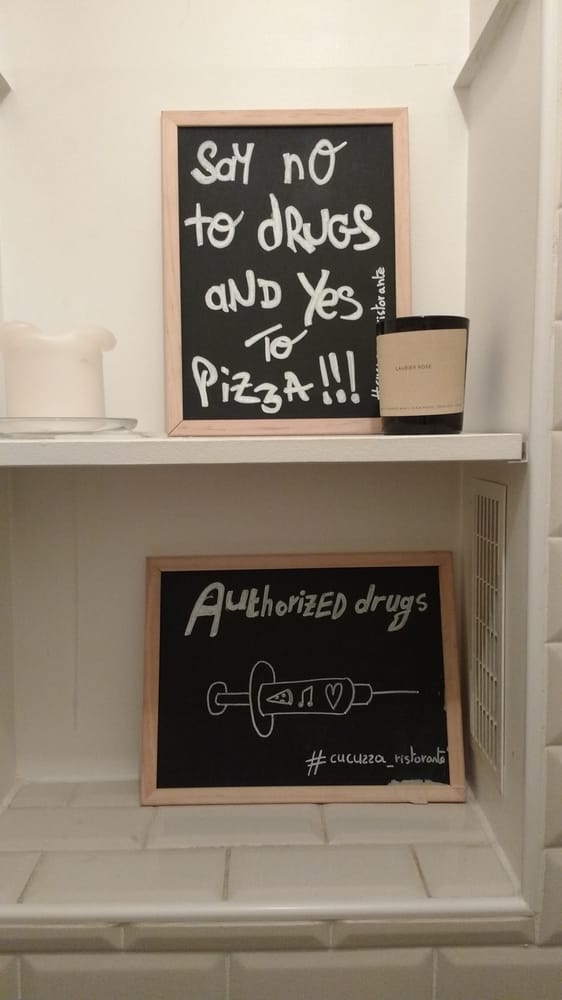 Say no
to drugs
and Yes
To
Pizza!!!
LAURIER ROSE
Authorized drugs
#cucuzza_ristorante